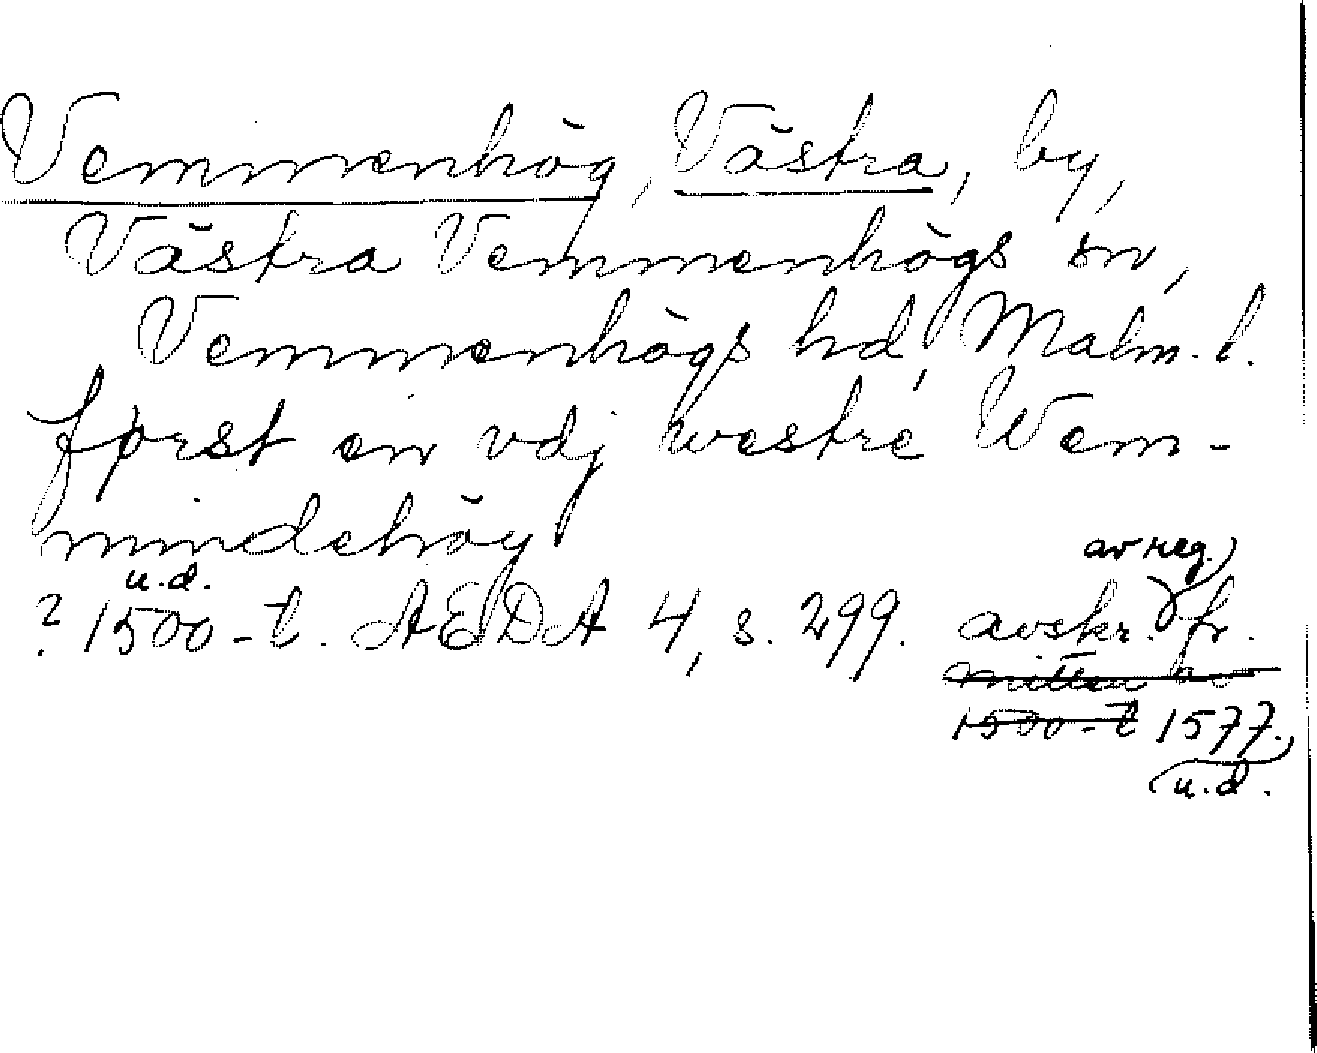 Vemmenhög, Västra, by,
Västra Vemmenhögs sn,
Vemmenhögs hd, Malm. l.
først en vdj westre Wem-
mindehöy
u.d.
? 1500-t. AEDA 4, s. 299. avskr. av reg. fr.
mitten av
1500-t 1577.
u.d.